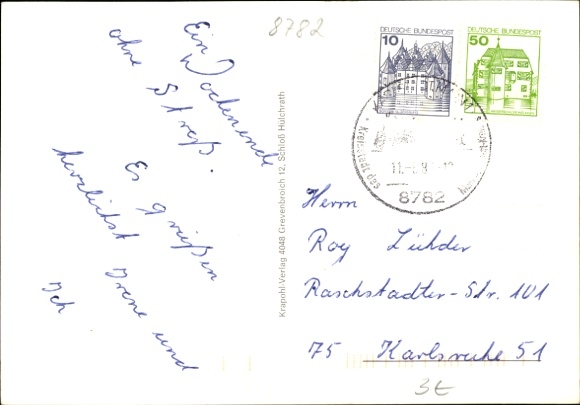 8782
Ein Wochenende
ohne Streß.
Es grüßen
herzlichst Irene und
Ich
Krapohl-Verlag 4048 Grevenbroich 12. Schloß Hülchrath
DEUTSCHE BUNDESPOST
10
DEUTSCHE BUNDESPOST
50
Kreisstadt des
11.
8782
Herrn
Roy Lühder
Raschstadter-Str. 101
75 Karlsruhe 51
3€